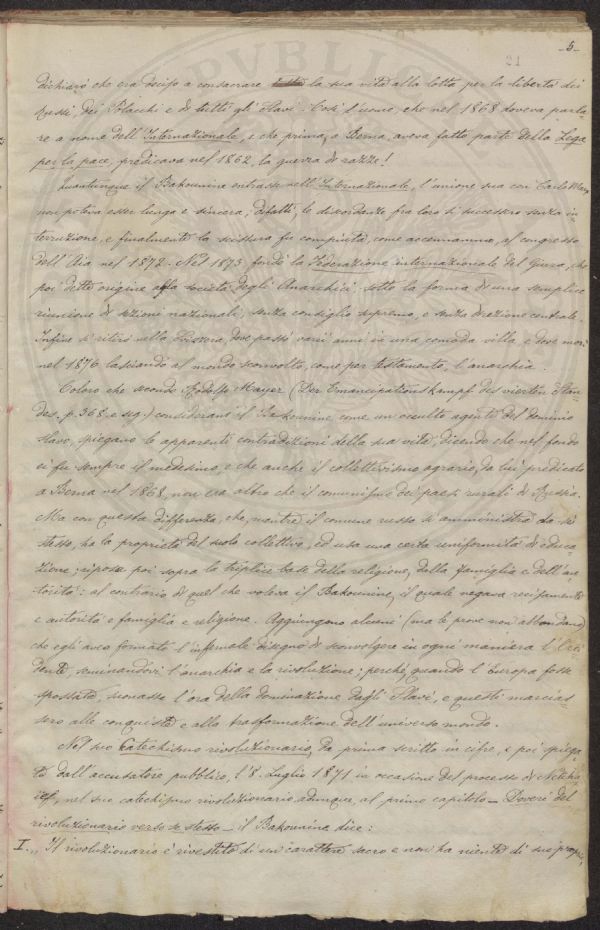 -5-
21
dichiarò che era deciso a consacrare tutta la sua vita alla lotta per la libertà dei
Russi, dei Polacchi e di tutti gli Slavi. Così l'uomo, che nel 1868 doveva parla-
re a nome dell'Internazionale, e che prima, a Berna, aveva fatto parte della Lega
per la pace, predicava nel 1862, la guerra di razze!
Quantunque il Bakounine entrasse nell'Internazionale, l'unione sua con Carlo Marx
non poteva esser lunga e sincera; difatti, le discordanze fra loro si successero senza in
terruzione, e finalmente la scissura fu compiuta, come accennammo, al congresso
dell'Aia nel 1872. Nel 1873 fondò la Federazione internazionale del Giura, che
poi dette origine alla società degli Anarchici sotto la forma di una semplice
riunione di sezioni nazionali, senza consiglio supremo, e senza direzione centrale.
Infine si ritirò nella Svizzera, dove passò varii anni in una comoda villa, e dove morì
nel 1876 lasciando al mondo sconvolto, come per testamento, l'anarchia.
Coloro che secondo Rodolfo Mayer (Der Emancipationskampf des vierten Stan-
des. p. 368. e seg.) considerano il Bakounine come un occulto agente del dominio
slavo, spiegano le apparenti contradizioni della sua vita, dicendo che nel fondo
ei fu sempre il medesimo, e che anche il collettivismo agrario, da lui predicato
a Berna nel 1868, non era altro che il comunismo dei paesi rurali di Russia.
Ma con questa differenza, che, mentre il comune russo si amministra da sè
stesso, ha la proprietà del suolo collettiva, ed usa una certa uniformità di educa
zione; riposa poi sopra la triplice base della religione, della famiglia e dell'au
torità: al contrario di quel che voleva il Bakounine, il quale negava recisamente
e autorità e famiglia e religione. Aggiungono alcuni (ma le prove non abbondano)
che egli aveva formato l'infernale disegno di sconvolgere in ogni maniera l'Occi
dente, seminandovi l'anarchia e la rivoluzione; perché, quando l'Europa fosse
spossata, suonasse l'ora della dominazione degli Slavi, e questi marcias-
sero alle conquiste e alla trasformazione dell'universo mondo.
Nel suo Catechismo rivoluzionario, da prima scritto in cifre, e poi spiega
to dall'accusatore pubblico, l'8. Luglio 1871 in occasione del processo di Netcha
ief, nel suo catechismo rivoluzionario adunque, al primo capitolo - Doveri del
rivoluzionario verso se stesso - il Bakounine dice:
I. „ Il rivoluzionario è rivestito di un carattere sacro e non ha niente di suo proprio,